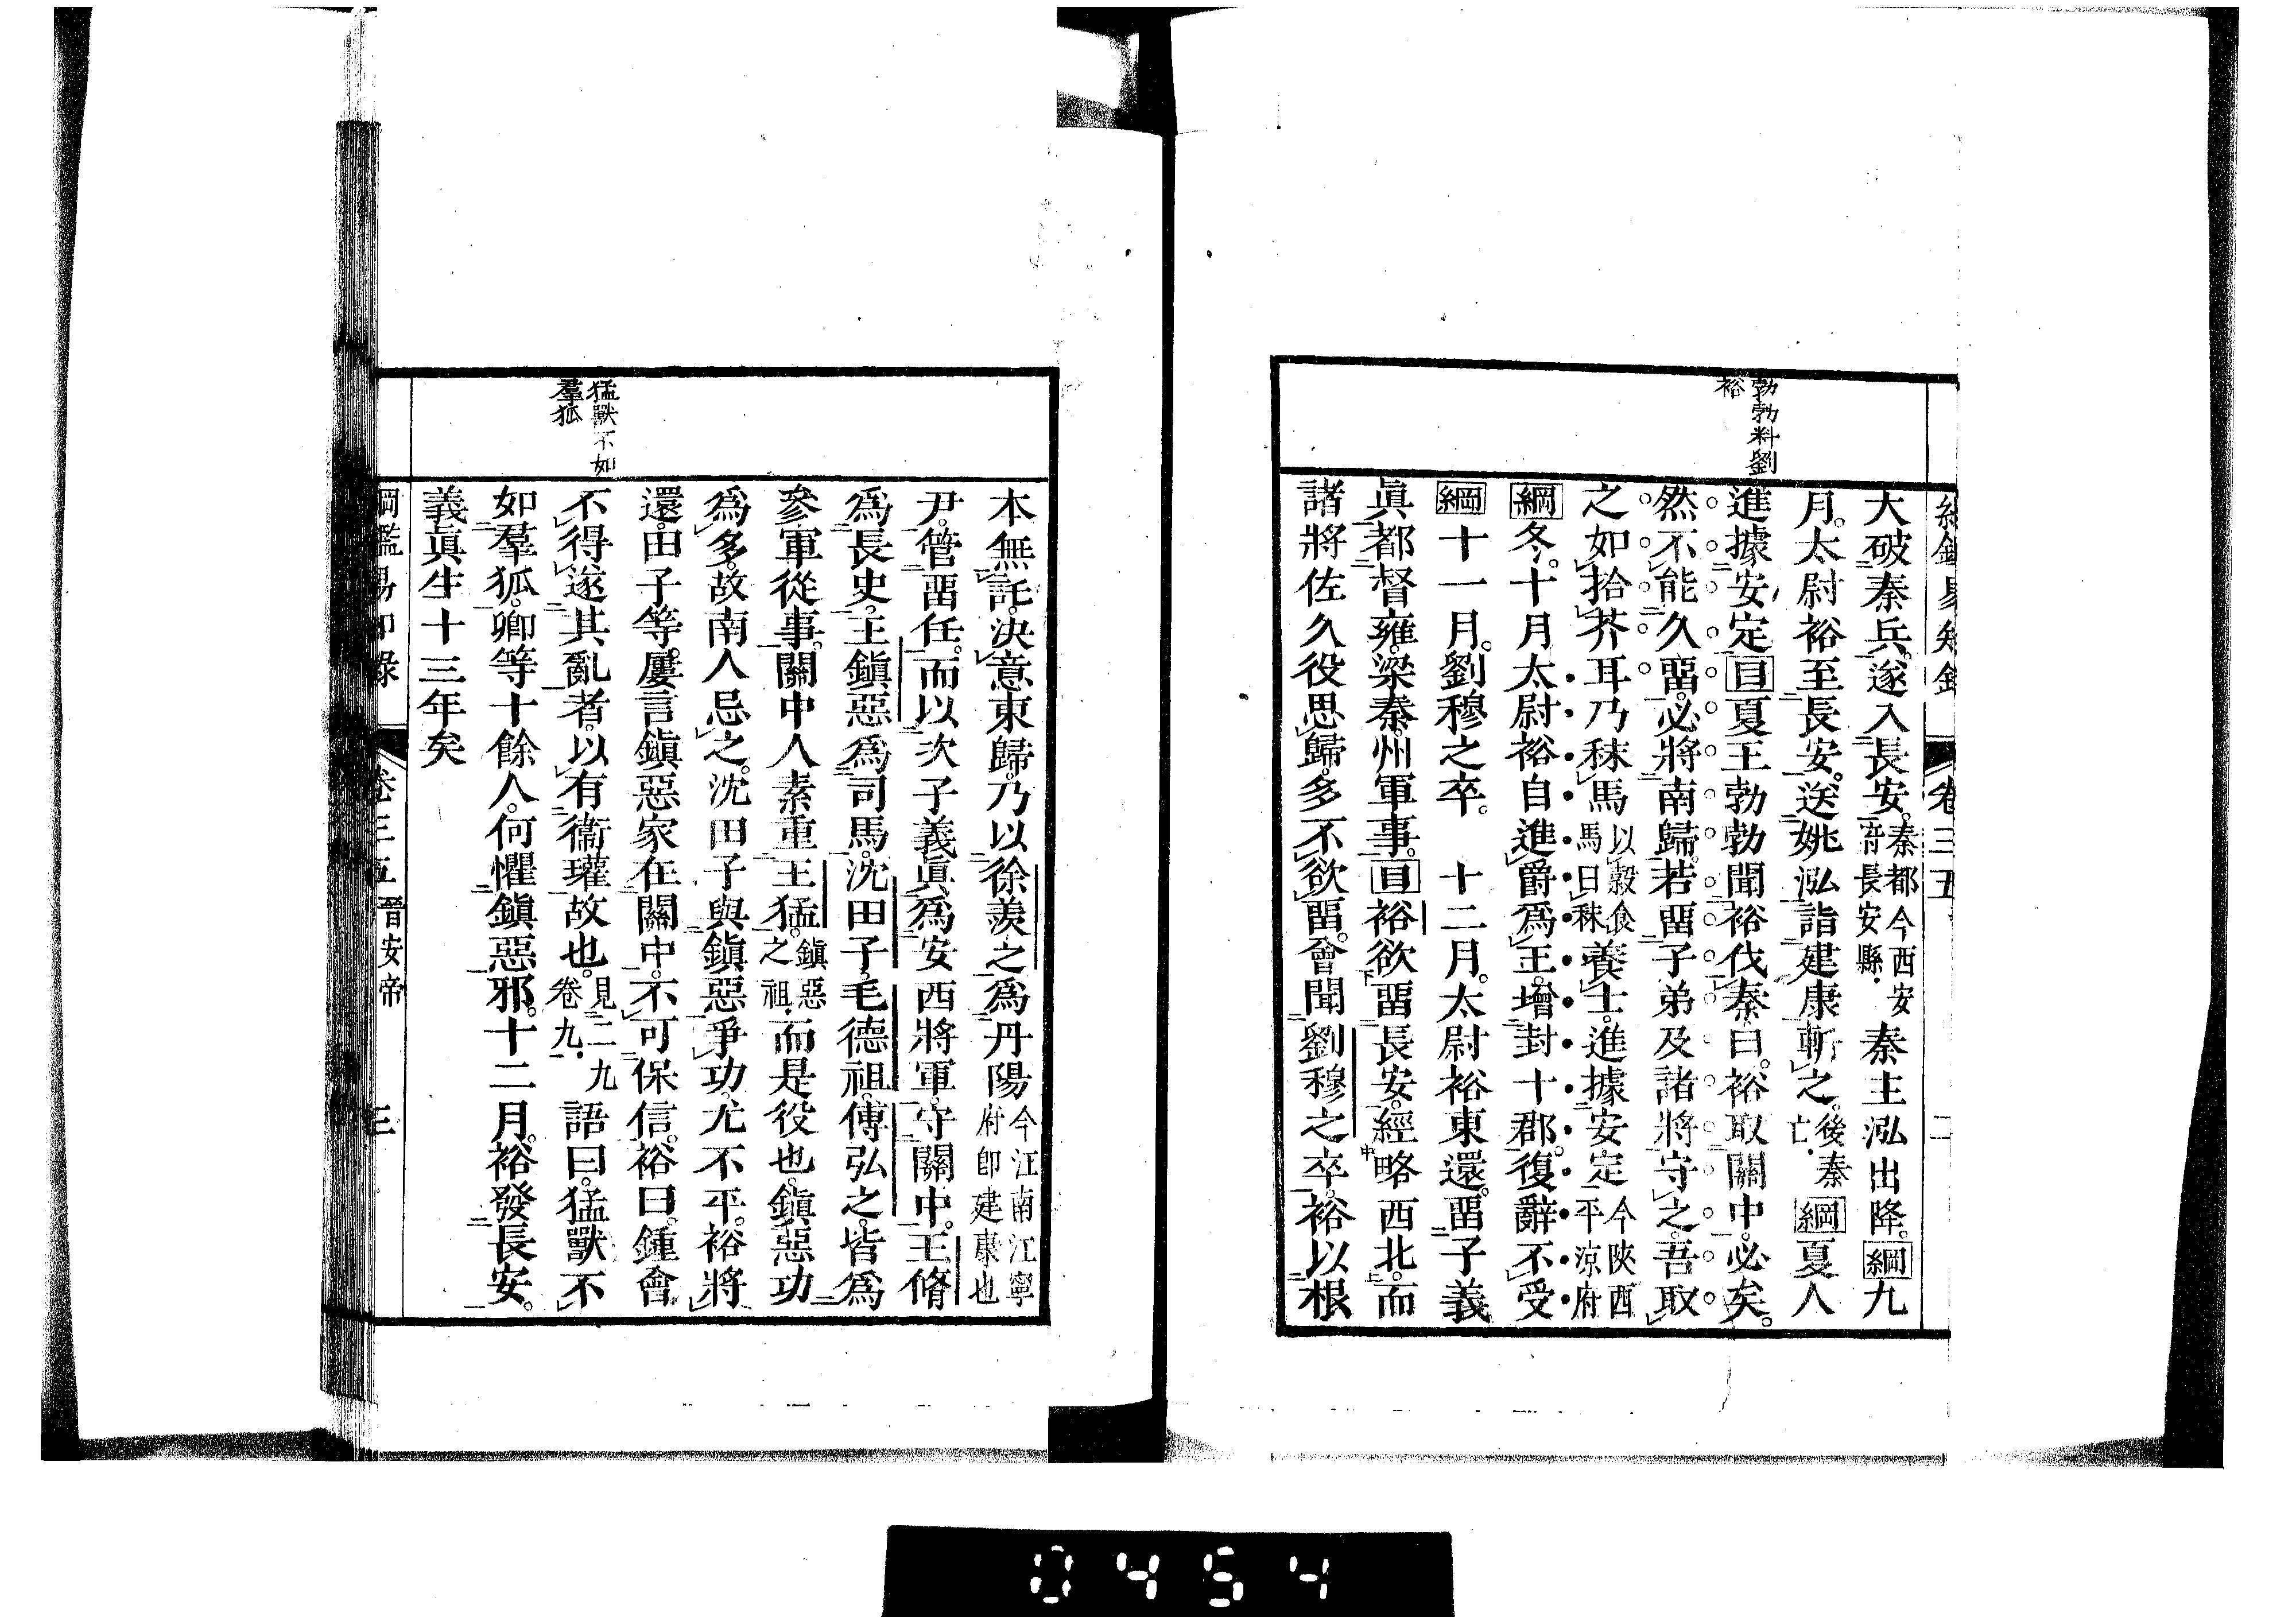 勃勃料劉
裕
大破秦兵。遂入長安。秦都今西安府長安縣・秦主泓出降。綱九
月。太尉裕至長安。送姚泓詣建康斬之。後秦亡・綱夏人
進據安定目夏王勃勃聞裕伐秦。曰。裕取關中必矣。
然不能久畱。必將南歸。若畱子弟及諸將守之。吾取
之如拾芥耳乃秣馬以穀食馬曰秣養士。進據安定今陝西平涼府
綱冬。十月太尉裕自進爵爲王。增封十郡。復辭不受
綱十一月。劉穆之卒。　十二月。太尉裕東還。畱子義
眞都督雍。梁秦。州軍事。目裕欲畱長安。經略西北。而
諸將佐久役思歸。多不欲畱。會聞劉穆之卒。裕以根
卷三五
二
猛獸不如
羣狐
本無託。決意東歸。乃以徐羨之爲丹陽今江南江寧府卽建康也
尹。管畱任。而以次子義眞爲安西將軍。守關中。王脩
爲長史。王鎭惡爲司馬。沈田子。毛德祖。傅弘之。皆爲
參軍從事。關中人素重王猛。鎭惡之祖・而是役也。鎭惡功
爲多。故南人忌之。沈田子與鎭惡爭功。尤不平。裕將
還。由子等。屢言鎭惡家在關中。不可保信。裕曰。鍾會
不得遂其亂者。以有衞瓘故也。見二九卷九・語曰。猛獸不
如羣狐。卿等十餘人。何懼鎭惡邪。十二月。裕發長安。
義眞生十三年矣
綱鑑易知錄　卷三五　晉安帝　三